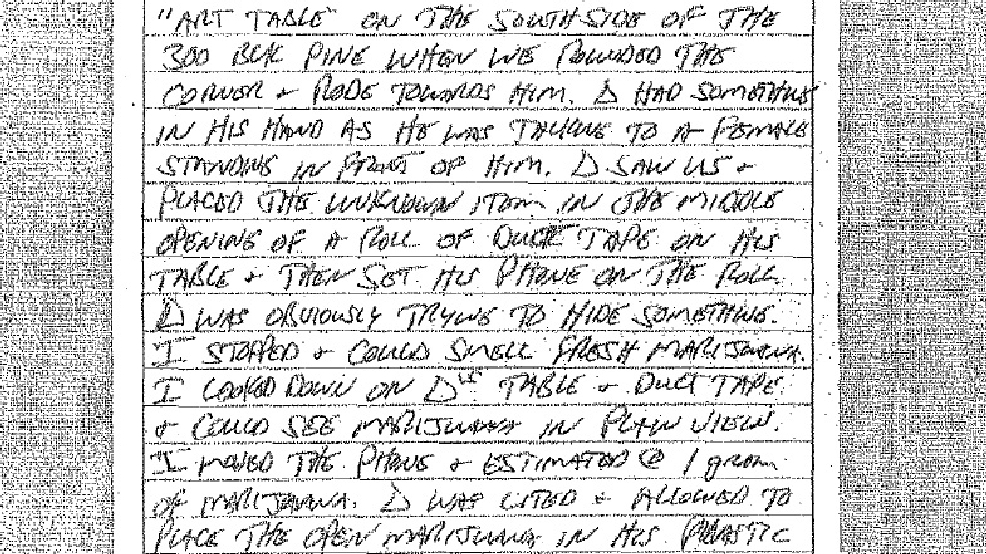 "ART TABLE" ON THE SOUTH SIDE OF THE
300 BLK PINE WHEN WE ROUNDED THE
CORNER & RODE TOWARDS HIM. Δ HAD SOMETHING
IN HIS HAND AS HE WAS TALKING TO A FEMALE
STANDING IN FRONT OF HIM. Δ SAW US &
PLACED THE UNKNOWN ITEM IN THE MIDDLE
OPENING OF A ROLL OF DUCT TAPE ON HIS
TABLE & THEN SET HIS PHONE ON THE ROLL.
Δ WAS OBVIOUSLY TRYING TO HIDE SOMETHING.
I STOPPED & COULD SMELL FRESH MARIJUANA.
I LOOKED DOWN ON Δ'S TABLE & DUCT TAPE
& COULD SEE MARIJUANA IN PLAIN VIEW.
I MOVED THE PHONE & ESTIMATED @ 1 gram
OF MARIJUANA. Δ WAS CITED & ALLOWED TO
PLACE THE OPEN MARIJUANA IN HIS PLASTIC